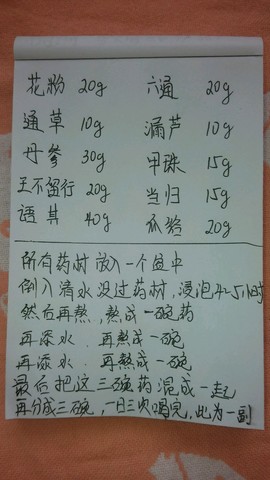 花粉 20g 六通 20g
通草 10g 漏芦 10g
丹参 30g 甲珠 15g
王不留行 20g 当归 15g
语其 40g 瓜蒌 20g
所有药材放入一个盆中
倒入清水没过药材,浸泡4-5小时
然后再熬,熬成一碗药
再添水.再熬成一碗
再添水.再熬成一碗
最后把这三碗药混成一起
再分成三碗,一日三次喝完,此为一副